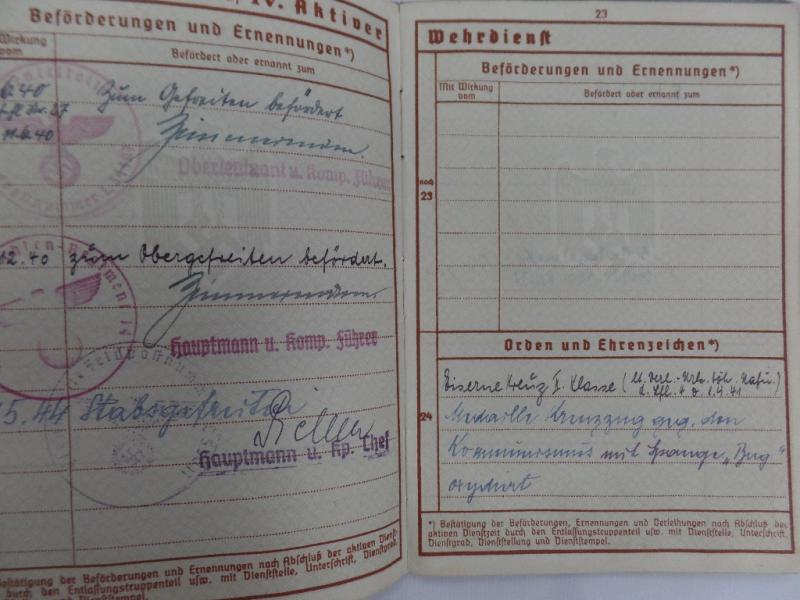 IV. Aktiver
Beförderungen und Ernennungen*)
Wirkung
vom
Befördert oder ernannt zum
.40 zum Gefreiten befördert
27
11.6.40
Zimmermann.
Oberleutnant u. Komp. Führer
12.40 zum Obergefreiten befördert.
Zimmermann
Hauptmann u. Komp. Führer
5.44 Stabsgefreiter
Hauptmann u. Kp. Chef
Bestätigung der Beförderungen und Ernennungen nach Abschluß der aktiven Dienst-
durch den Entlassungstruppenteil usw. mit Dienststelle, Unterschrift, Dienstgrad,
23
Wehrdienst
Beförderungen und Ernennungen*)
Mit Wirkung
vom
Befördert oder ernannt zum
noch
23
Orden und Ehrenzeichen*)
Eiserne Kreuz II. Klasse (lt. Verl.
24
Medaille Kreuzzug geg. den
Kommunismus mit Spange „Bug"
*) Bestätigung der Beförderungen, Ernennungen und Verleihungen nach Abschluß der
aktiven Dienstzeit durch den Entlassungstruppenteil usw. mit Unterschrift,
Dienstgrad, Dienststellung und Dienststempel.